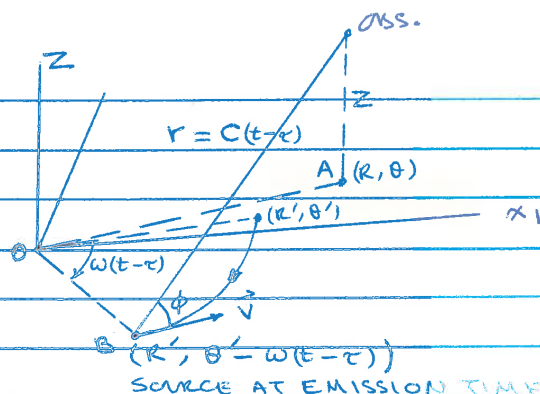 OBS.
Z
Z
r = C(t-τ)
A (R, θ)
(R', θ')
x₁
O
ω(t-τ)
φ
V⃗
B
(R', θ' - ω(t-τ))
SOURCE AT EMISSION TIME